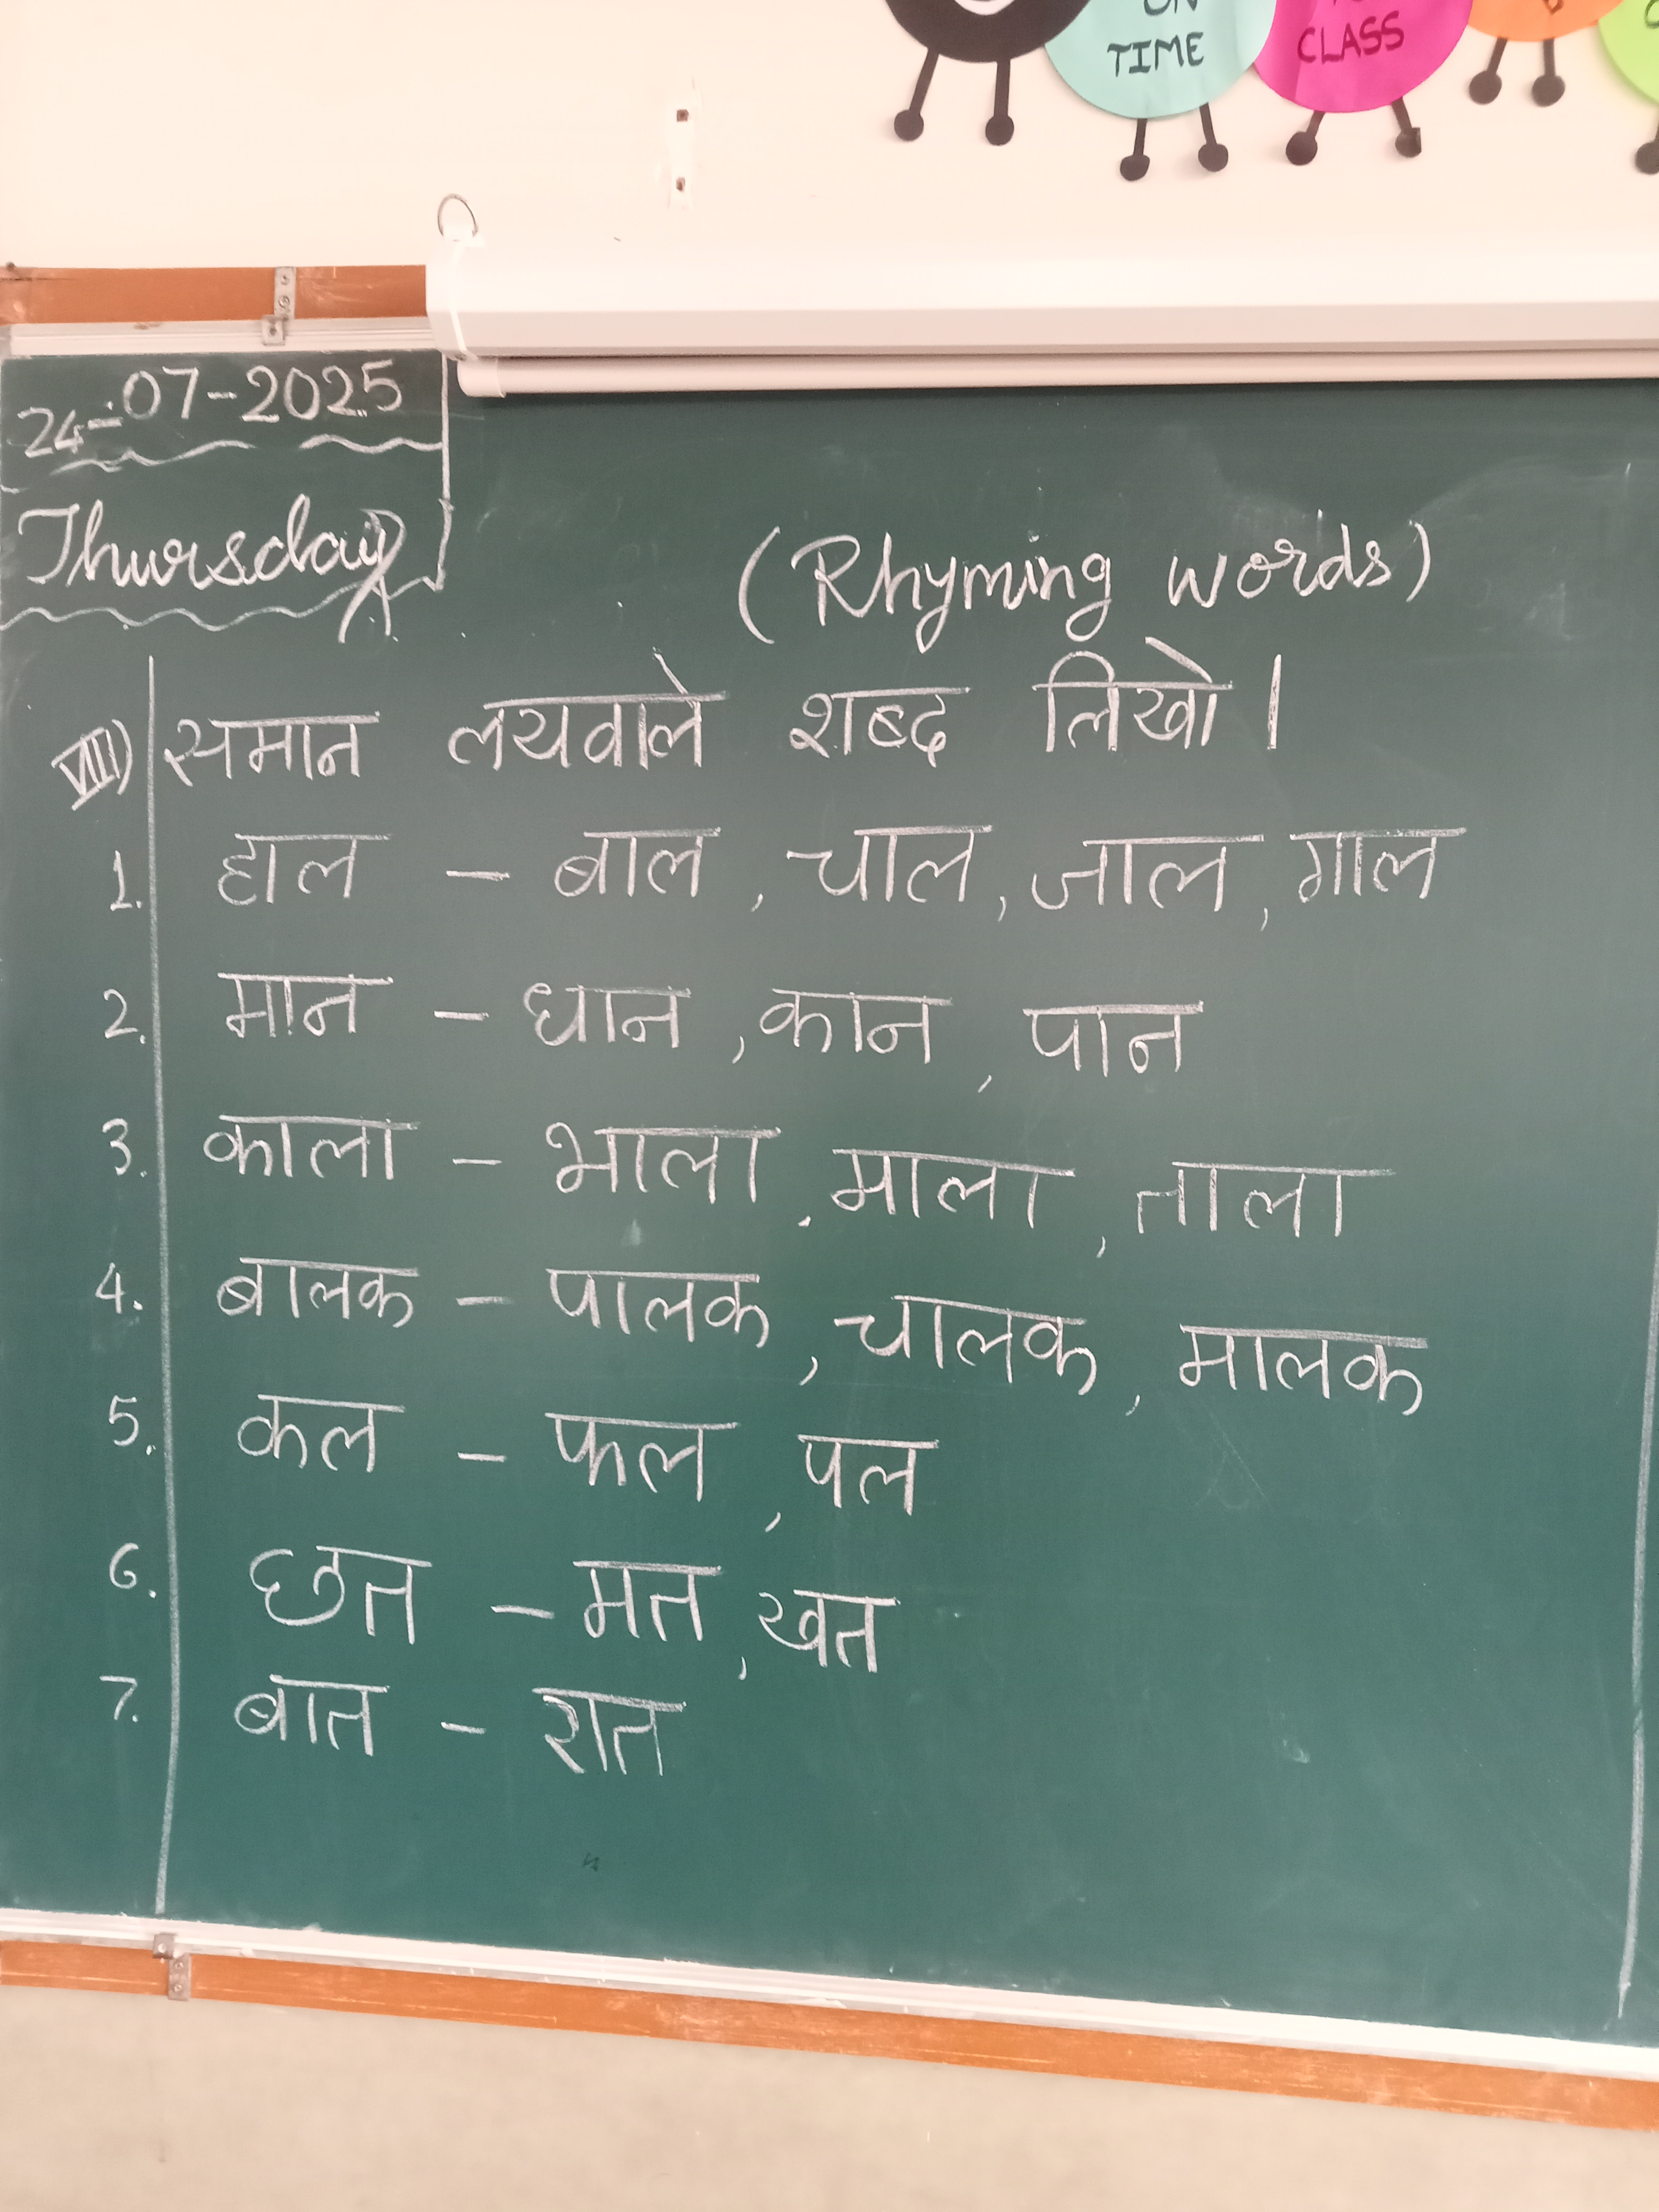 ON
TIME
CLASS
24-07-2025
Thursday
(Rhyming words)
VIII) समान लयवाले शब्द लिखो।
1. हाल - बाल, चाल, जाल, गाल
2. मान - धान, कान, पान
3. काला - भाला, माला, ताला
4. बालक - पालक, चालक, मालक
5. कल - फल, पल
6. छत - मत, खत
7. बात - रात